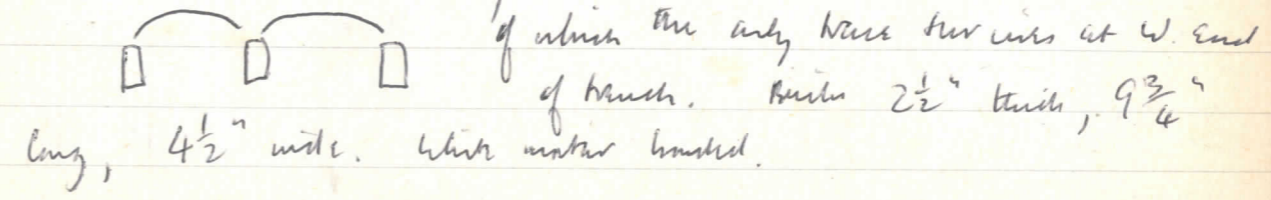 of which the only trace survives at W. End
of trench. Bricks 2½" thick, 9¾"
long, 4½" wide. White mortar bonded.